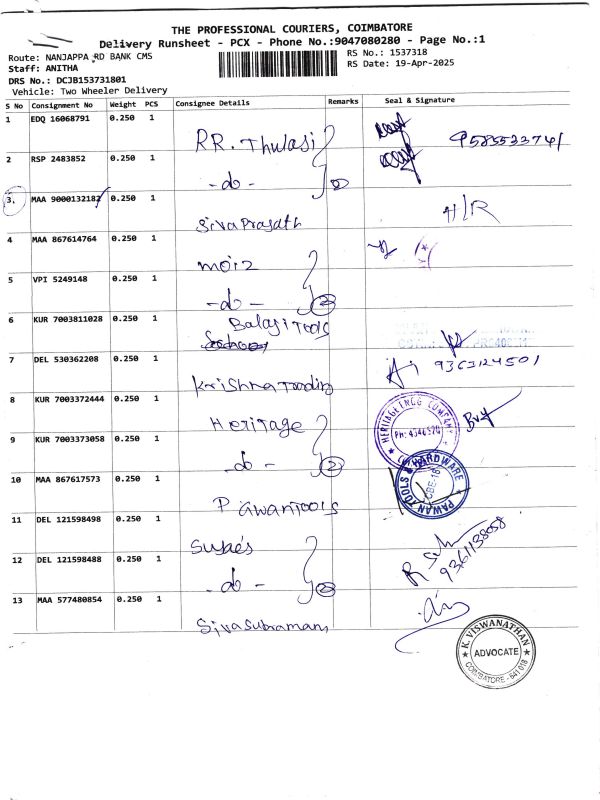 THE PROFESSIONAL COURIERS, COIMBATORE
Delivery Runsheet - PCX - Phone No.:9047080280 - Page No.:1
Route: NANJAPPA RD BANK CMS
RS No.: 1537318
Staff: ANITHA
RS Date: 19-Apr-2025
DRS No.: DCJB153731801
Vehicle: Two Wheeler Delivery
S No Consignment No Weight PCS Consignee Details Remarks Seal & Signature
1 EDQ 16068791 0.250 1
RR. Thulasi
2 RSP 2483852 0.250 1
-do- 2
3. MAA 9000132182 0.250 1
SivaPrasath H/R
4 MAA 867614764 0.250 1
moiz
5 VPI 5249148 0.250 1
-do- 2
6 KUR 7003811028 0.250 1
Balaji Tools
7 DEL 530362208 0.250 1
9363124501
Krishna Trading
8 KUR 7003372444 0.250 1
Heritage
HERITAGE ENGG COMPANY
9 KUR 7003373058 0.250 1
-do- 2
10 MAA 867617573 0.250 1
PAWAN TOOLS & HARDWARE
CBE-18
Pawan Tools
11 DEL 121598498 0.250 1
12 DEL 121598488 0.250 1
9361138058
-do- 2
13 MAA 577480854 0.250 1
Sivasubramani
K. VISWANATHAN
ADVOCATE
COIMBATORE - 641 018